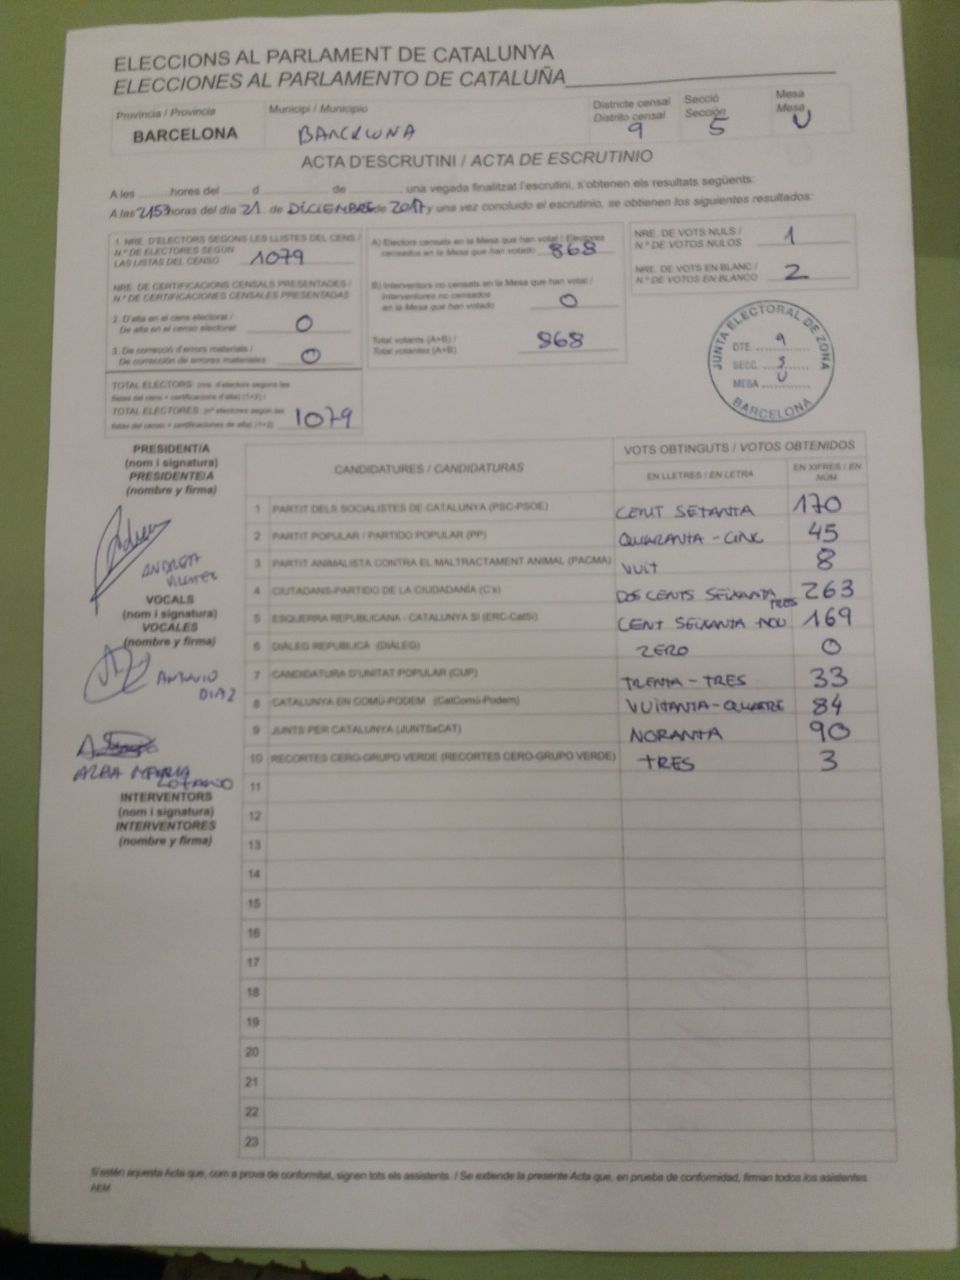 ELECCIONS AL PARLAMENT DE CATALUNYA
ELECCIONES AL PARLAMENTO DE CATALUÑA
Provincia / Provincia
BARCELONA
Municipi / Municipio
BARCELONA
Districte censal
Distrito censal
9
Secció
Sección
5
Mesa
Mesa
U
ACTA D'ESCRUTINI / ACTA DE ESCRUTINIO
A les hores del d de , una vegada finalitzat l'escrutini, s'obtenen els resultats següents:
A las 2153 horas del día 21 de DICIEMBRE de 2017 y una vez concluido el escrutinio, se obtienen los siguientes resultados:
1. NRE. D'ELECTORS SEGONS LES LLISTES DEL CENS /
N.º DE ELECTORES SEGÚN
LAS LISTAS DEL CENSO 1079
NRE. DE CERTIFICACIONS CENSALS PRESENTADES /
N.º DE CERTIFICACIONES CENSALES PRESENTADAS
2. D'alta en el cens electoral /
De alta en el censo electoral 0
3. De correcció d'errors materials /
De corrección de errores materiales 0
TOTAL ELECTORS: (nre. d'electors segons les
llistes del cens + certificacions d'alta) (1+2) /
TOTAL ELECTORES: (nº electores según las
listas del censo + certificaciones de alta) (1+2) 1079
A) Electors censats en la Mesa que han votat / Electores
censados en la Mesa que han votado 868
B) Interventors no censats en la Mesa que han votat /
Interventores no censados
en la Mesa que han votado 0
Total votants (A+B) /
Total votantes (A+B) 868
NRE. DE VOTS NULS /
N.º DE VOTOS NULOS 1
NRE. DE VOTS EN BLANC /
N.º DE VOTOS EN BLANCO 2
JUNTA ELECTORAL DE ZONA
DTE. 9
SECC. 5
MESA U
BARCELONA
PRESIDENT/A
(nom i signatura)
PRESIDENTE/A
(nombre y firma)
ANDREA
VOCALS
(nom i signatura)
VOCALES
(nombre y firma)
ANTONIO
DIAZ
ALBA
INTERVENTORS
(nom i signatura)
INTERVENTORES
(nombre y firma)
CANDIDATURES / CANDIDATURAS
VOTS OBTINGUTS / VOTOS OBTENIDOS
EN LLETRES / EN LETRA
EN XIFRES / EN
NÚM
1 PARTIT DELS SOCIALISTES DE CATALUNYA (PSC-PSOE) CENT SETANTA 170
2 PARTIT POPULAR / PARTIDO POPULAR (PP) QUARANTA - CINC 45
3 PARTIT ANIMALISTA CONTRA EL MALTRACTAMENT ANIMAL (PACMA) VUIT 8
4 CIUTADANS-PARTIDO DE LA CIUDADANÍA (C's) DOS CENTS SEIXANTA TRES 263
5 ESQUERRA REPUBLICANA - CATALUNYA SÍ (ERC-CatSí) CENT SEIXANTA NOU 169
6 DIÀLEG REPUBLICÀ (DIÀLEG) ZERO 0
7 CANDIDATURA D'UNITAT POPULAR (CUP) TRENTA - TRES 33
8 CATALUNYA EN COMÚ-PODEM (CatComú-Podem) VUITANTA-QUATRE 84
9 JUNTS PER CATALUNYA (JUNTSxCAT) NORANTA 90
10 RECORTES CERO-GRUPO VERDE (RECORTES CERO-GRUPO VERDE) TRES 3
11
12
13
14
15
16
17
18
19
20
21
22
23
Si estén aquesta Acta que, com a prova de conformitat, signen tots els assistents. / Se extiende la presente Acta que, en prueba de conformidad, firman todos los asistentes.
AEM